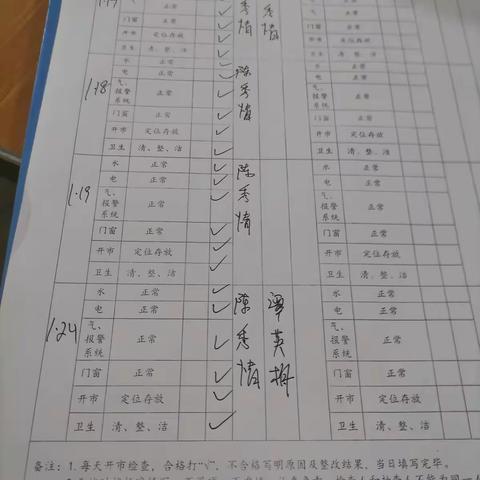 1.17
正常
门窗 正常
开市 定位存放 ✓
卫生 清、整、洁 ✓
秀 情
秀 情
1.18
水 正常 ✓
电 正常 ✓
气、报警系统 正常 ✓
门窗 正常 ✓
开市 定位存放 ✓
卫生 清、整、洁 ✓
陈秀情
水 正常
电 正常
气、报警系统 正常
门窗 正常
开市 定位存放
卫生 清、整、洁
1.19
水 正常 ✓
电 正常 ✓
气、报警系统 正常 ✓
门窗 正常 ✓
开市 定位存放 ✓
卫生 清、整、洁 ✓
陈秀情
水 正常
电 正常
气、报警系统 正常
门窗 正常
开市 定位存放
卫生 清、整、洁
1.24
水 正常 ✓
电 正常 ✓
气、报警系统 正常 ✓
门窗 正常 ✓
开市 定位存放 ✓
卫生 清、整、洁 ✓
陈秀情
水 正常
电 正常
气、报警系统 正常
门窗 正常
开市 定位存放
卫生 清、整、洁
备注：1. 每天开市检查，合格打“√”，不合格写明原因及整改结果，当日填写完毕。